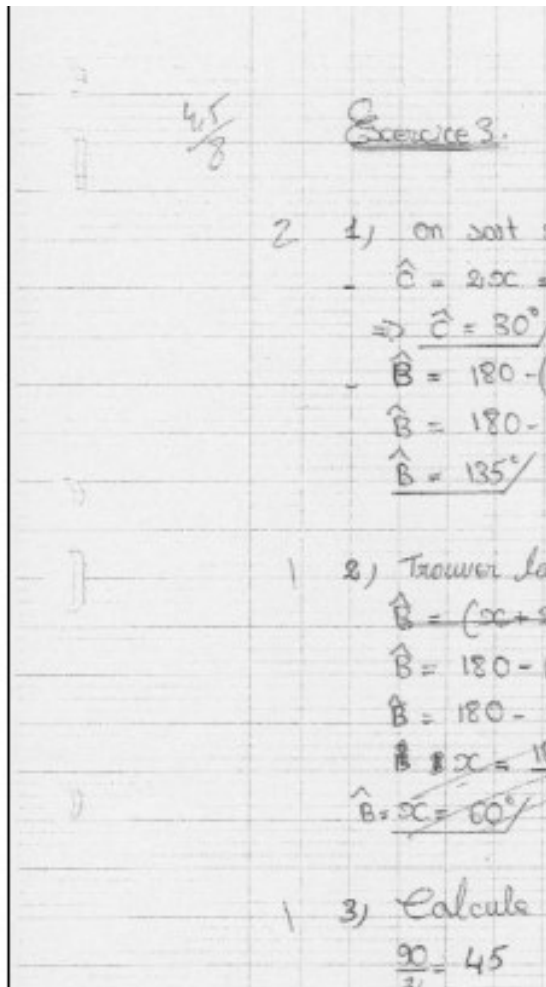 4,5/8
Excercice 3.
2 1) on sait
- Ĉ = 2x =
=> Ĉ = 30°
- B̂ = 180 - (
B̂ = 180 -
B̂ = 135°
1 2) Trouver la
B̂ = (x +
B̂ = 180 -
B̂ = 180 -
x =
B̂ = x = 60°
1 3) Calcule
90/2 = 45